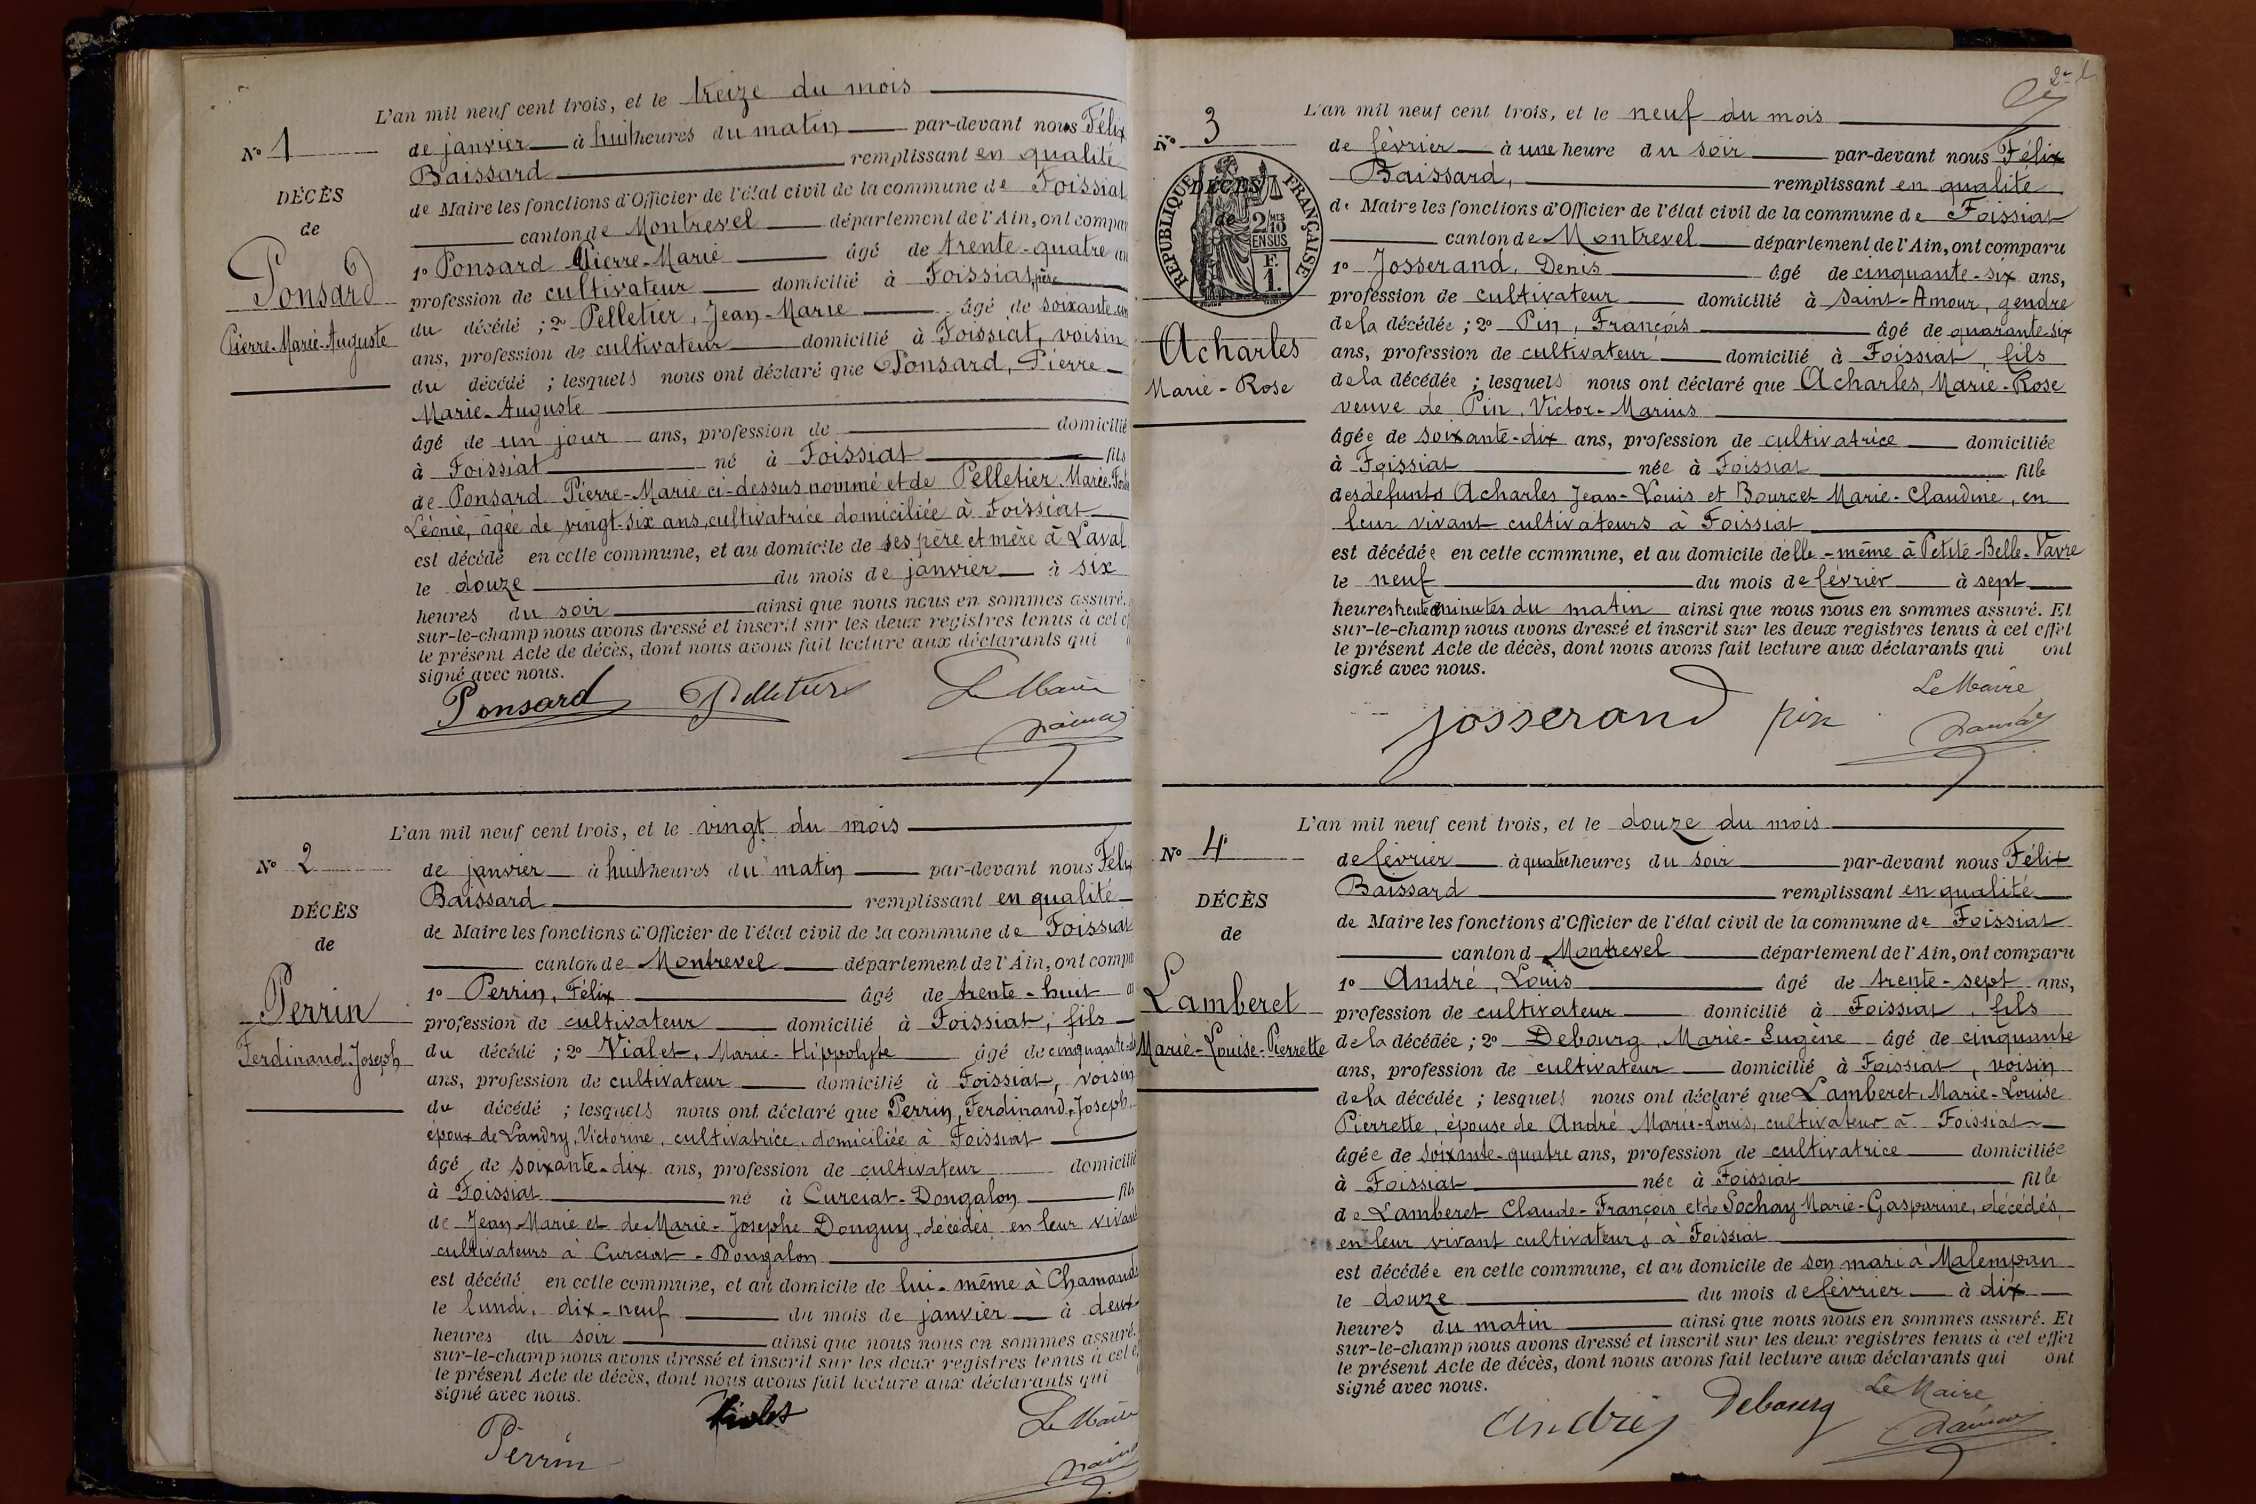 L'an mil neuf cent trois, et le treize du mois
N° 1
de janvier à huit heures du matin par-devant nous Félix
Baissard remplissant en qualité
DÉCÈS
de Maire les fonctions d'Officier de l'état civil de la commune de Foissiat
de
canton de Montrevel département de l'Ain, ont compar
1° Ponsard Pierre-Marie âgé de trente-quatre
Ponsard
profession de cultivateur domicilié à Foissiat, père
du décédé ; 2° Pelletier, Jean-Marie âgé de soixante
Pierre-Marie-Auguste
ans, profession de cultivateur domicilié à Foissiat, voisin
du décédé ; lesquels nous ont déclaré que Ponsard, Pierre-
Marie-Auguste
âgé de un jour ans, profession de domicilié
à Foissiat né à Foissiat fils
de Ponsard Pierre-Marie ci-dessus nommé et de Pelletier Marie
Léonie, âgée de vingt-six ans, cultivatrice domiciliée à Foissiat
est décédé en cette commune, et au domicile de ses père et mère à Laval
le douze du mois de janvier à six
heures du soir ainsi que nous nous en sommes assuré.
sur-le-champ nous avons dressé et inscrit sur les deux registres tenus à cet
le présent Acte de décès, dont nous avons fait lecture aux déclarants qui
signé avec nous.
Ponsard Pelletier Le Maire
L'an mil neuf cent trois, et le vingt du mois
N° 2
de janvier à huit heures du matin par-devant nous Félix
Baissard remplissant en qualité
DÉCÈS
de Maire les fonctions d'Officier de l'état civil de la commune de Foissiat
de
canton de Montrevel département de l'Ain, ont compa
1° Perrin, Félix âgé de trente-huit
Perrin
profession de cultivateur domicilié à Foissiat, fils
Ferdinand-Joseph
du décédé ; 2° Vialet, Marie-Hippolyte âgé de cinquante
ans, profession de cultivateur domicilié à Foissiat, voisin
du décédé ; lesquels nous ont déclaré que Perrin, Ferdinand-Joseph
époux de Landry, Victorine, cultivatrice, domiciliée à Foissiat
âgé de soixante-dix ans, profession de cultivateur domicilié
à Foissiat né à Curciat-Dongalon fils
de Jean-Marie et de Marie-Josephe Donguy, décédés, en leur vivant
cultivateurs à Curciat-Dongalon
est décédé en cette commune, et au domicile de lui-même à Chamande
le lundi, dix-neuf du mois de janvier à deux
heures du soir ainsi que nous nous en sommes assuré.
sur-le-champ nous avons dressé et inscrit sur les deux registres tenus à cet
le présent Acte de décès, dont nous avons fait lecture aux déclarants qui
signé avec nous.
Perrin Vialet Le Maire
L'an mil neuf cent trois, et le neuf du mois
N° 3
de février à une heure du soir par-devant nous Félix
Baissard, remplissant en qualité
DÉCÈS
de Maire les fonctions d'Officier de l'état civil de la commune de Foissiat
de
RÉPUBLIQUE FRANÇAISE
2/10 EN SUS
F. 1.
canton de Montrevel département de l'Ain, ont comparu
1° Josserand, Denis âgé de cinquante-six ans,
profession de cultivateur domicilié à Saint-Amour, gendre
de la décédée ; 2° Pin, François âgé de quarante-six
Acharles
ans, profession de cultivateur domicilié à Foissiat, fils
Marie-Rose
de la décédée ; lesquels nous ont déclaré que Acharles, Marie-Rose
veuve de Pin, Victor-Marius
âgée de soixante-dix ans, profession de cultivatrice domiciliée
à Foissiat née à Foissiat fille
des défunts Acharles Jean-Louis et Bourcet Marie-Claudine, en
leur vivant cultivateurs à Foissiat
est décédée en cette commune, et au domicile d'elle-même à Petite-Belle-Vavre
le neuf du mois de février à sept
heures trente minutes du matin ainsi que nous nous en sommes assuré. Et
sur-le-champ nous avons dressé et inscrit sur les deux registres tenus à cet effet
le présent Acte de décès, dont nous avons fait lecture aux déclarants qui ont
signé avec nous.
Josserand pin Le Maire
L'an mil neuf cent trois, et le douze du mois
N° 4
de février à quatre heures du soir par-devant nous Félix
Baissard remplissant en qualité
DÉCÈS
de Maire les fonctions d'Officier de l'état civil de la commune de Foissiat
de
canton d Montrevel département de l'Ain, ont comparu
1° André, Louis âgé de trente-sept ans,
Lamberet
profession de cultivateur domicilié à Foissiat, fils
Marie-Louise-Pierrette
de la décédée ; 2° Debourg, Marie-Eugène âgé de cinquante
ans, profession de cultivateur domicilié à Foissiat, voisin
de la décédée ; lesquels nous ont déclaré que Lamberet, Marie-Louise
Pierrette, épouse de André Marie-Louis, cultivateur à Foissiat
âgée de soixante-quatre ans, profession de cultivatrice domiciliée
à Foissiat née à Foissiat fille
de Lamberet Claude-François et de Sochay Marie-Gasparine, décédés,
en leur vivant cultivateurs à Foissiat
est décédée en cette commune, et au domicile de son mari à Malempan
le douze du mois de février à dix
heures du matin ainsi que nous nous en sommes assuré. Et
sur-le-champ nous avons dressé et inscrit sur les deux registres tenus à cet effet
le présent Acte de décès, dont nous avons fait lecture aux déclarants qui ont
signé avec nous.
André Debourg Le Maire